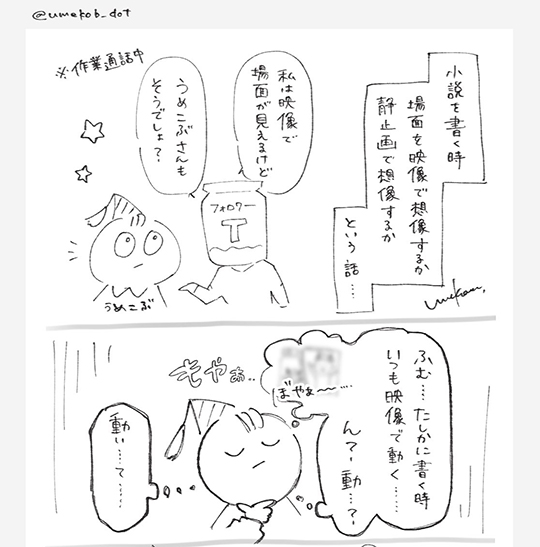 @umekob_dot
小説を書く時
場面を映像で想像するか
静止画で想像するか
という話…
umekobu.
※作業通話中
私は映像で
場面が見えるけど
うめこぶさんも
そうでしょ？
フォロワー
T
うめこぶ
ふむ…たしかに書く時
いつも映像で動く……
んてー動…？
ぼやぁ〜〜……
もやぁ..
動い…て……